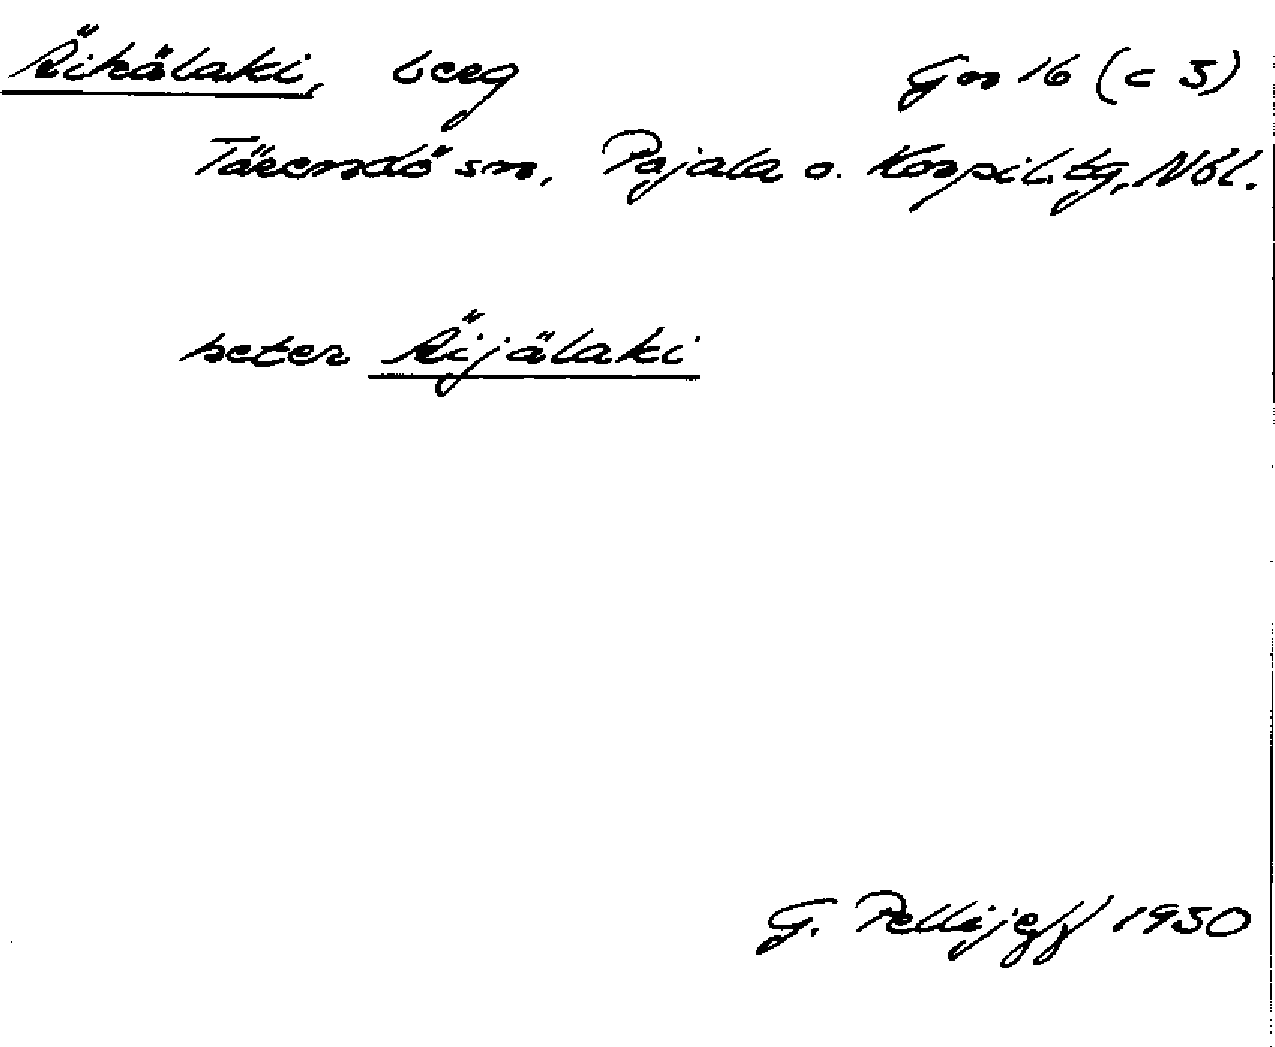 Äikälaki, berg Gn 16 (c 3)
Tärendö sn, Pajala o. Korpil. tg, Nbl.
heter Äijälaki
G. Pellijeff 1950